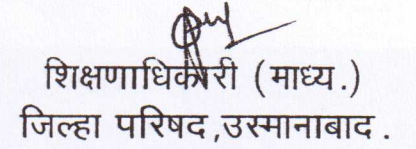 शिक्षणाधिकारी (माध्य.)
जिल्हा परिषद,उस्मानाबाद.